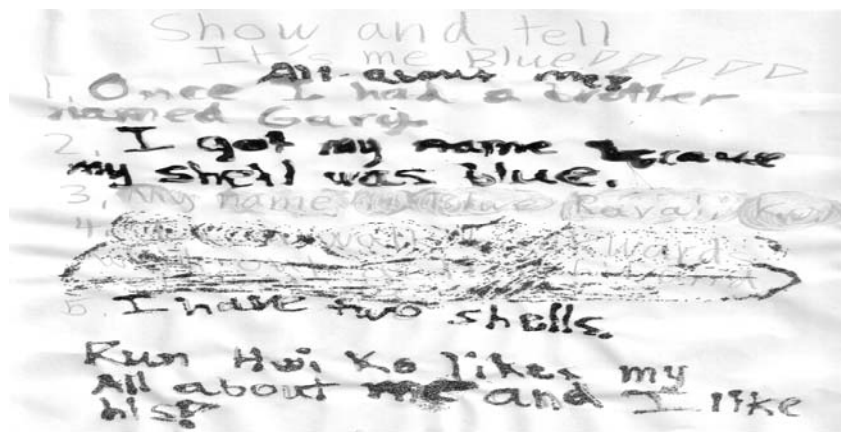 Show and tell
It's me Blue
All about me
1. Once I had a brother
named Gary.
2. I got my name because
my shell was blue.
3. My name is Blue Ravali
4. walk wards
5. I have two shells.
Kun Hoi Ko likes my
All about me and I like
his!